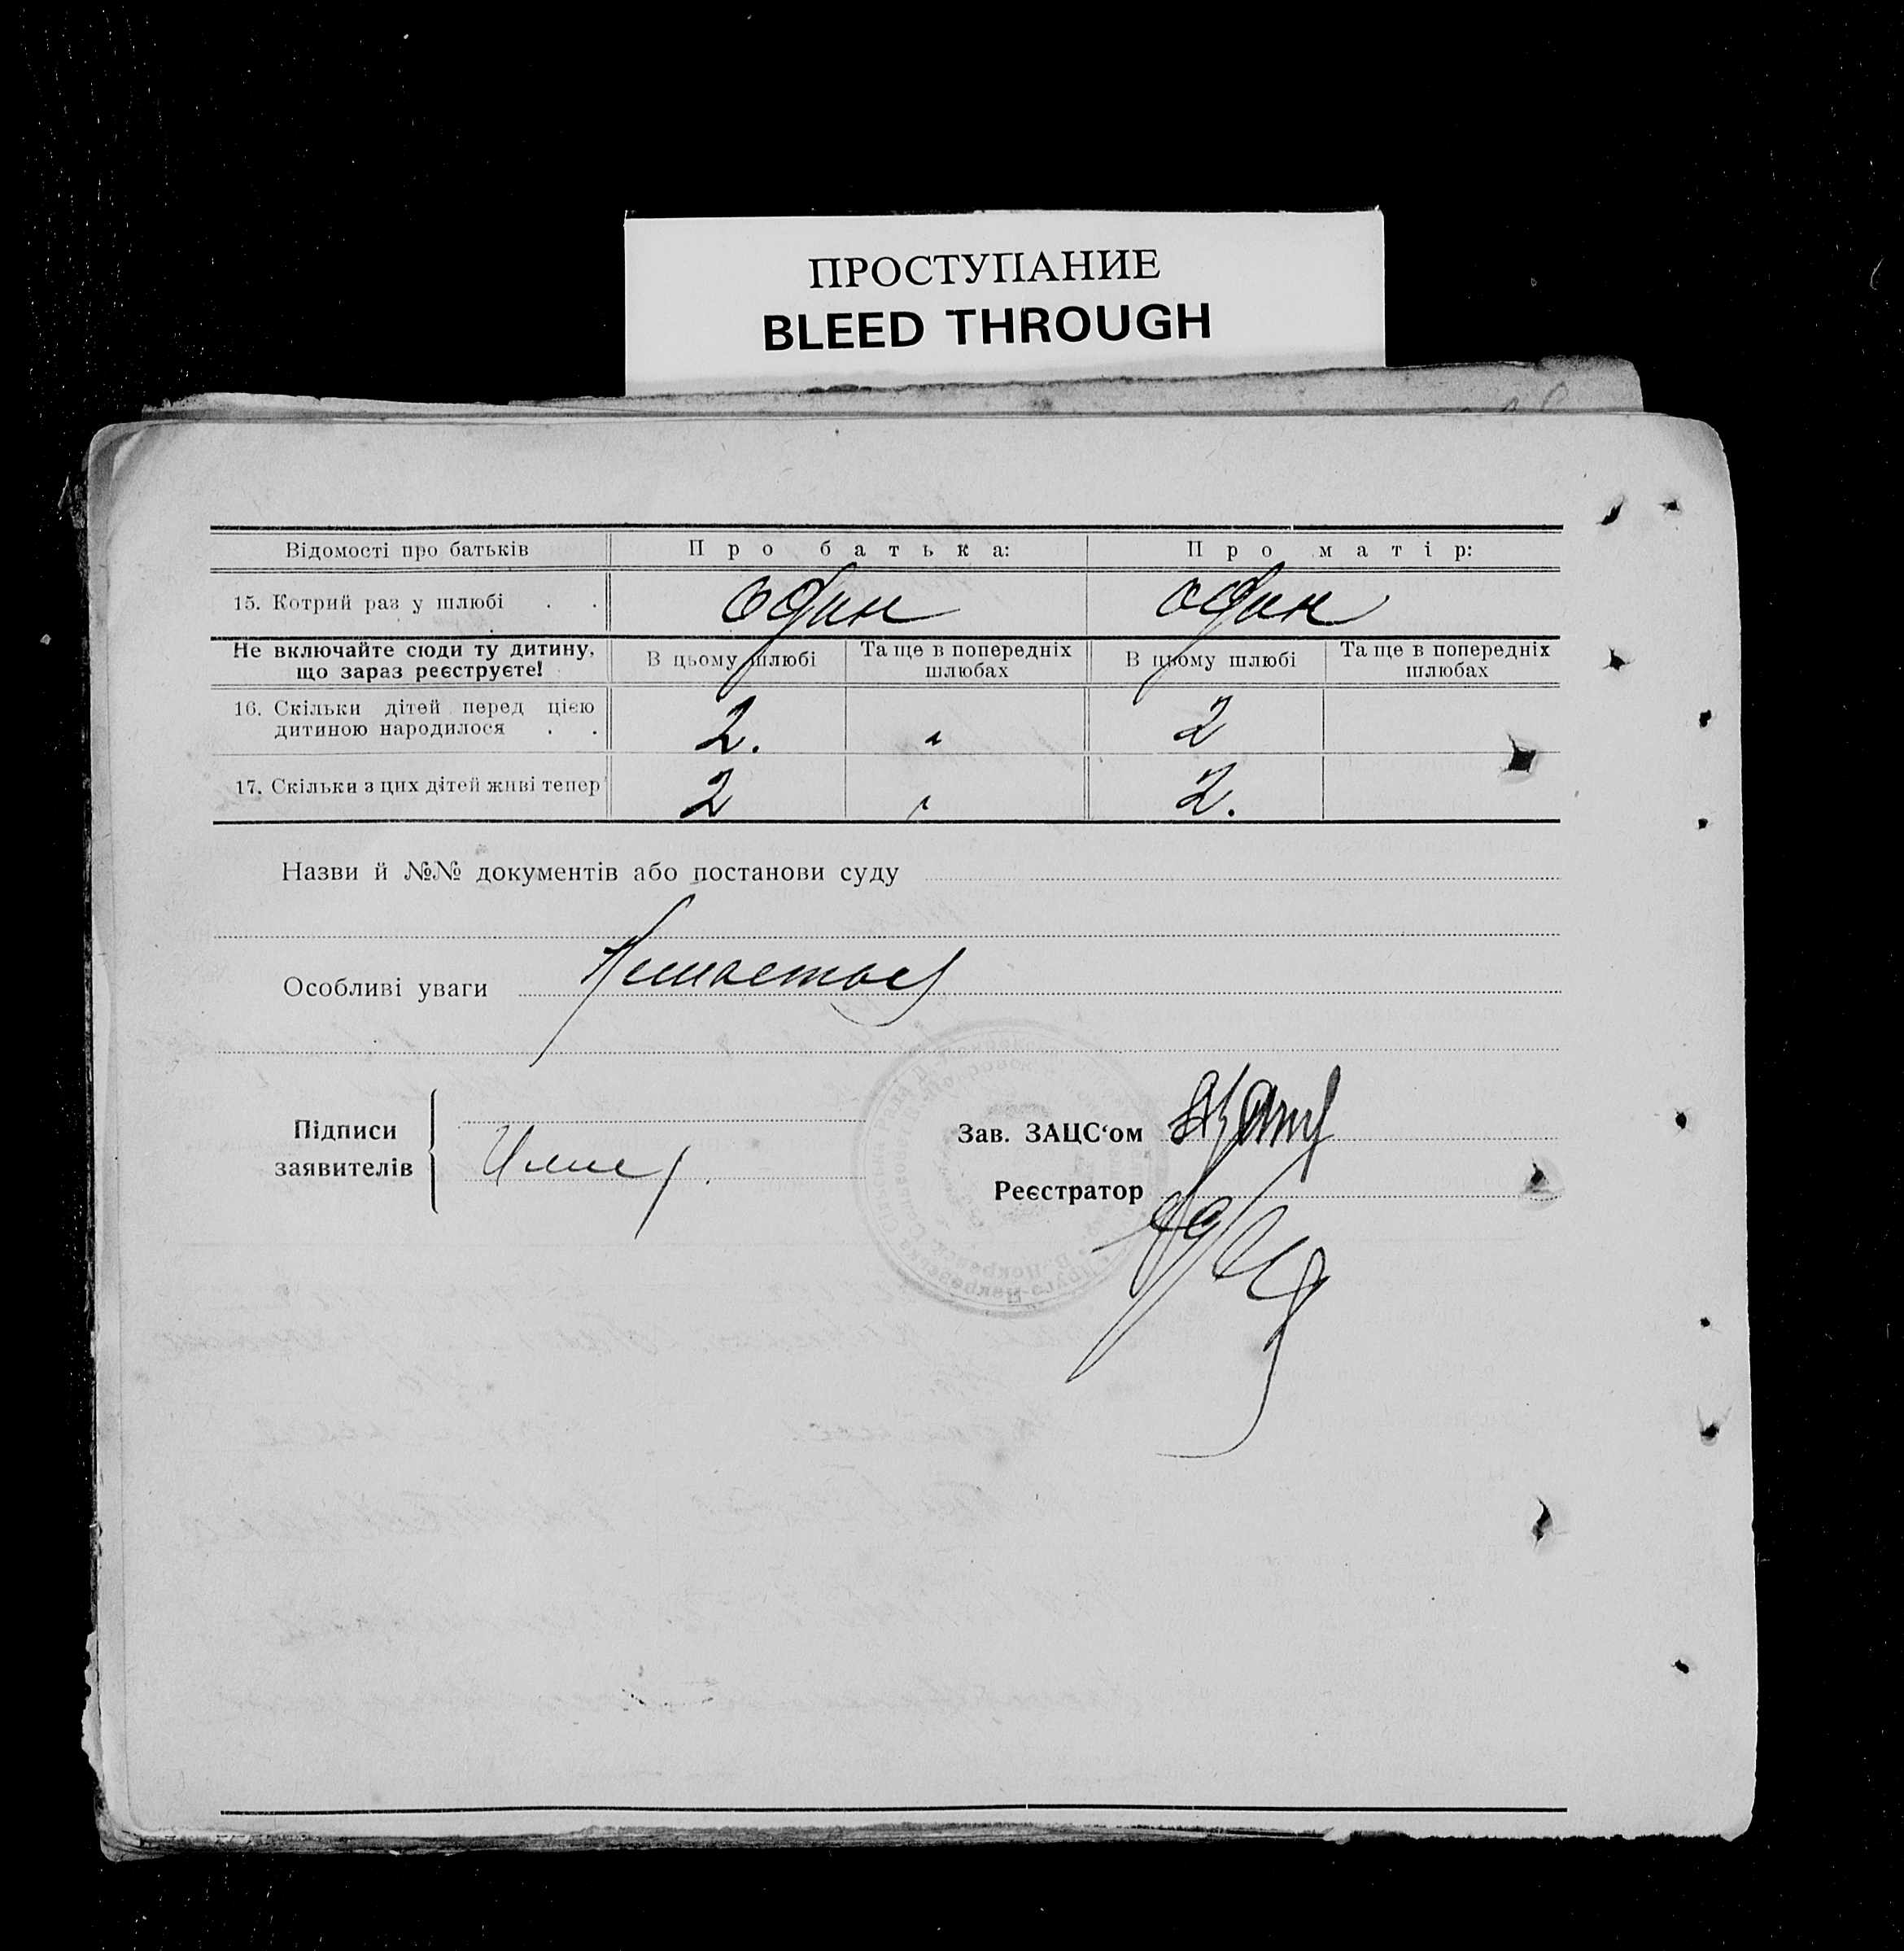 ПРОСТУПАНИЕ
BLEED THROUGH
Відомості про батьків Про батька: Про матір:
15. Котрий раз у шлюбі . . один один
Не включайте сюди ту дитину, що зараз реєструєте! В цьому шлюбі Та ще в попередніх шлюбах В цьому шлюбі Та ще в попередніх шлюбах
16. Скільки дітей перед цією
дитиною народилося . . 2. " 2
17. Скільки з цих дітей живі тепер 2 " 2.
Назви й №№ документів або постанови суду
Особливі уваги
Підписи
заявителів
Зав. ЗАЦС‘ом
Реєстратор